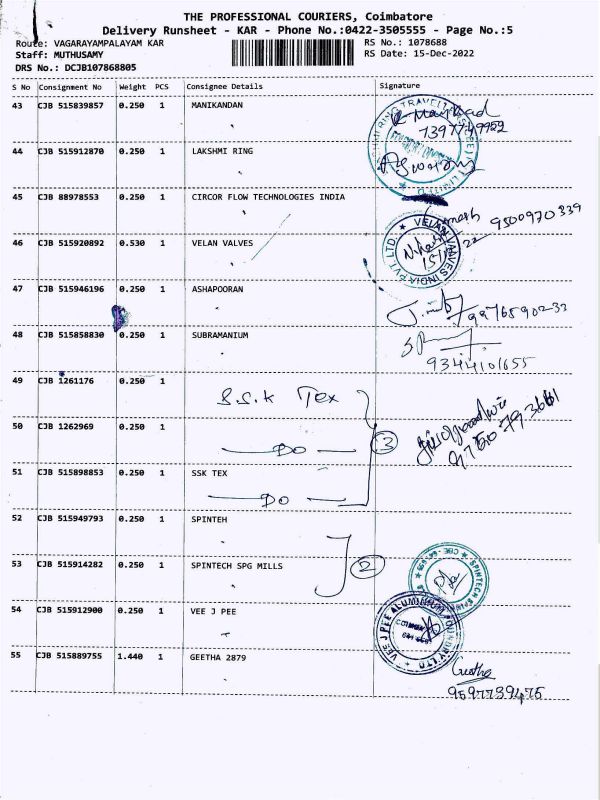 THE PROFESSIONAL COURIERS, Coimbatore
Delivery Runsheet - KAR - Phone No.:0422-3505555 - Page No.:5
Route: VAGARAYAMPALAYAM KAR
RS No.: 1078688
Staff: MUTHUSAMY
RS Date: 15-Dec-2022
DRS No.: DCJB107868805
S No Consignment No Weight PCS Consignee Details Signature
43 CJB 515839857 0.250 1 MANIKANDAN
7397749952
44 CJB 515912870 0.250 1 LAKSHMI RING
45 CJB 88978553 0.250 1 CIRCOR FLOW TECHNOLOGIES INDIA
9500970339
46 CJB 515920892 0.530 1 VELAN VALVES
VELAN VALVES INDIA PVT. LTD.
47 CJB 515946196 0.250 1 ASHAPOORAN
48 CJB 515858830 0.250 1 SUBRAMANIUM
9344101655
49 CJB 1261176 0.250 1
S.S.K Tex
50 CJB 1262969 0.250 1
Do
3
51 CJB 515898853 0.250 1 SSK TEX
Do
52 CJB 515949793 0.250 1 SPINTEH
53 CJB 515914282 0.250 1 SPINTECH SPG MILLS
2
54 CJB 515912900 0.250 1 VEE J PEE
VEE J PEE ALUMINIUM FOUNDRY LTD
55 CJB 515889755 1.440 1 GEETHA 2879
Geetha
9597739475